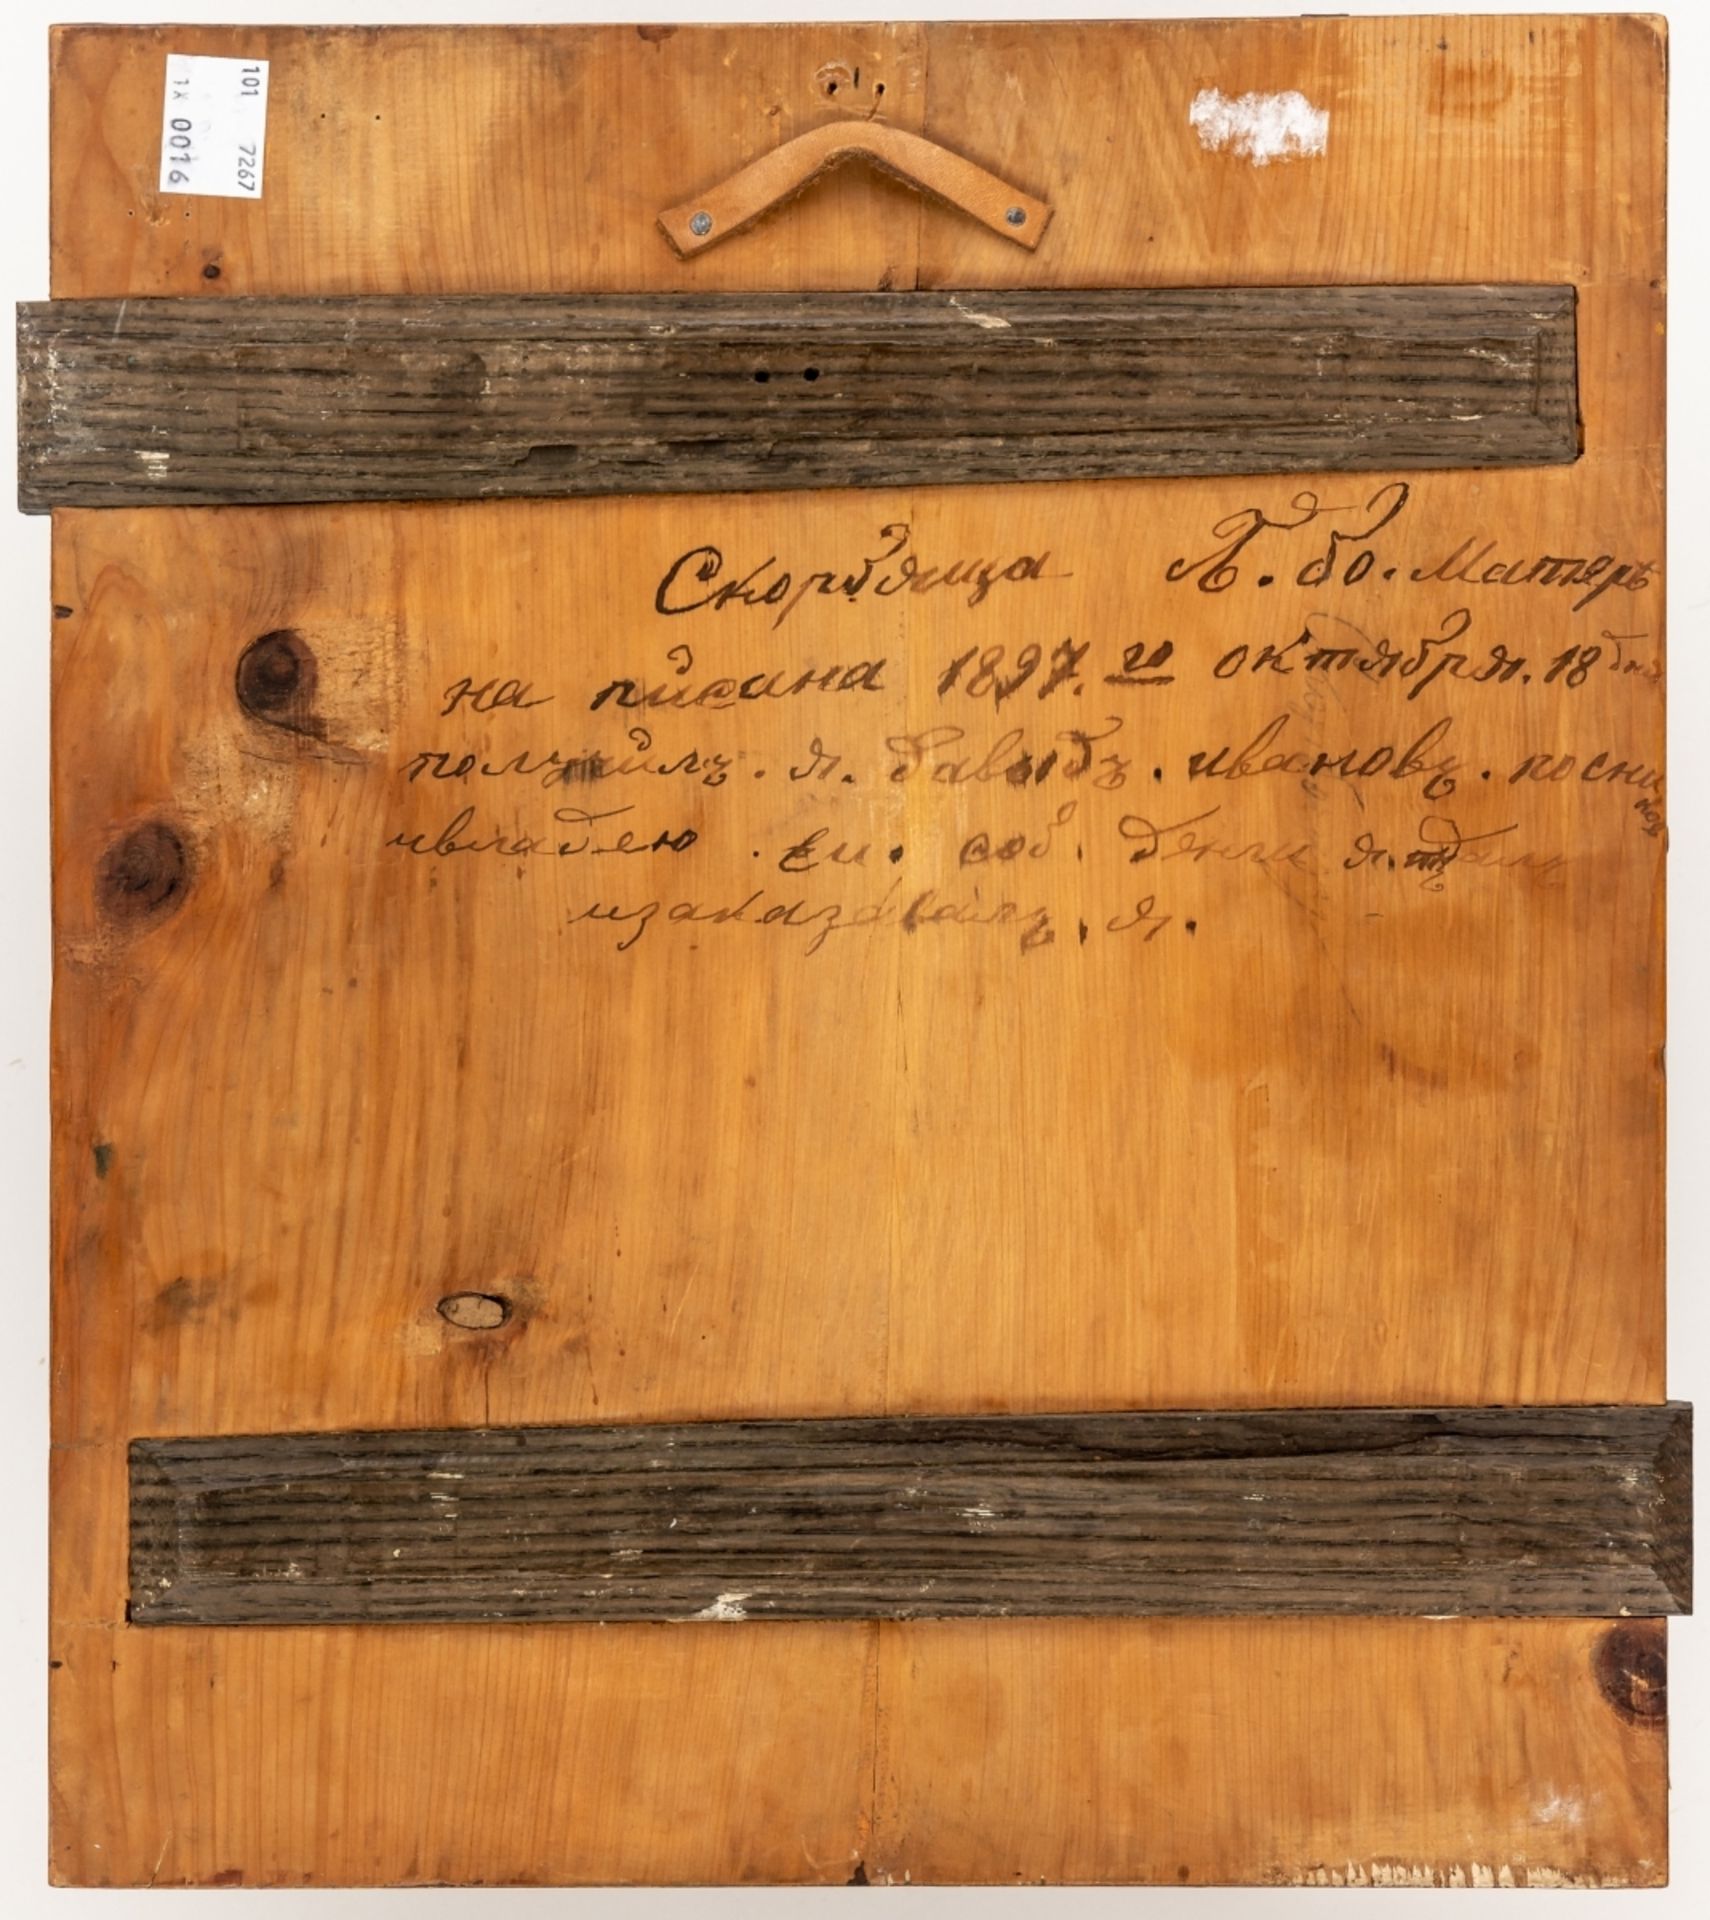 101 7267
1X 0016
Скорбящца П. бо. Матерь
на писана 1897. го октября. 18 дня
получилъ. я. Давыдъ. ивановъ. посни
ков
ивладею. ен. соб. денги я.
изаказавалъ. я.